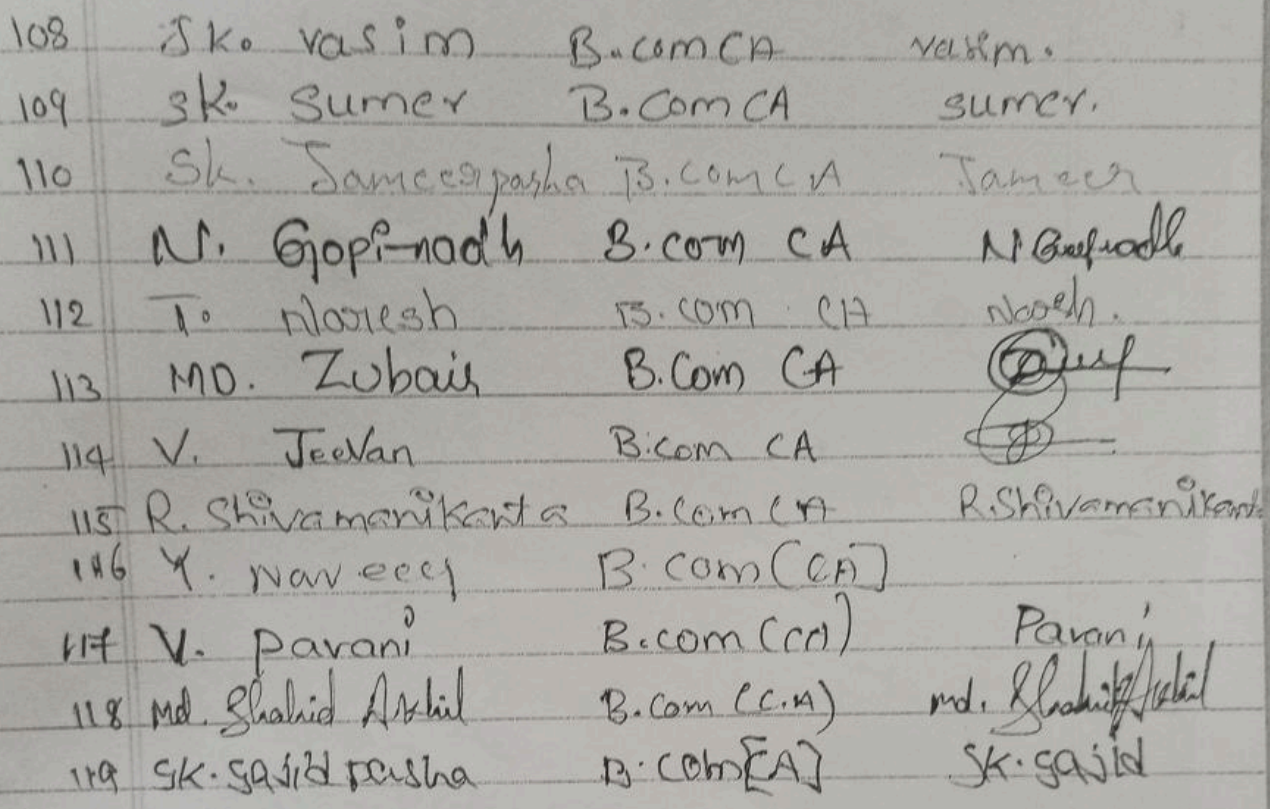 108 Sk. vasim B.com CA vasim.
109 Sk. Sumer B.Com CA sumer.
110 Sk. Jameerpasha B.com CA Jameer
111 N. Gopi-nadh B.com CA N Gopinadh
112 T. Naresh B.com CA Naresh.
113 MD. Zubair B.Com CA
114 V. Jeevan B.com CA
115 R. Shivamanikanta B.Com CA R.Shivamanikant
116 Y. Naveen B.com (CA]
117 V. pavani B.com (CA) Pavani
118 Md. Shahid B.Com (C.A) md. Shahid
119 SK. Sajid pasha B.com [CA] SK. Sajid